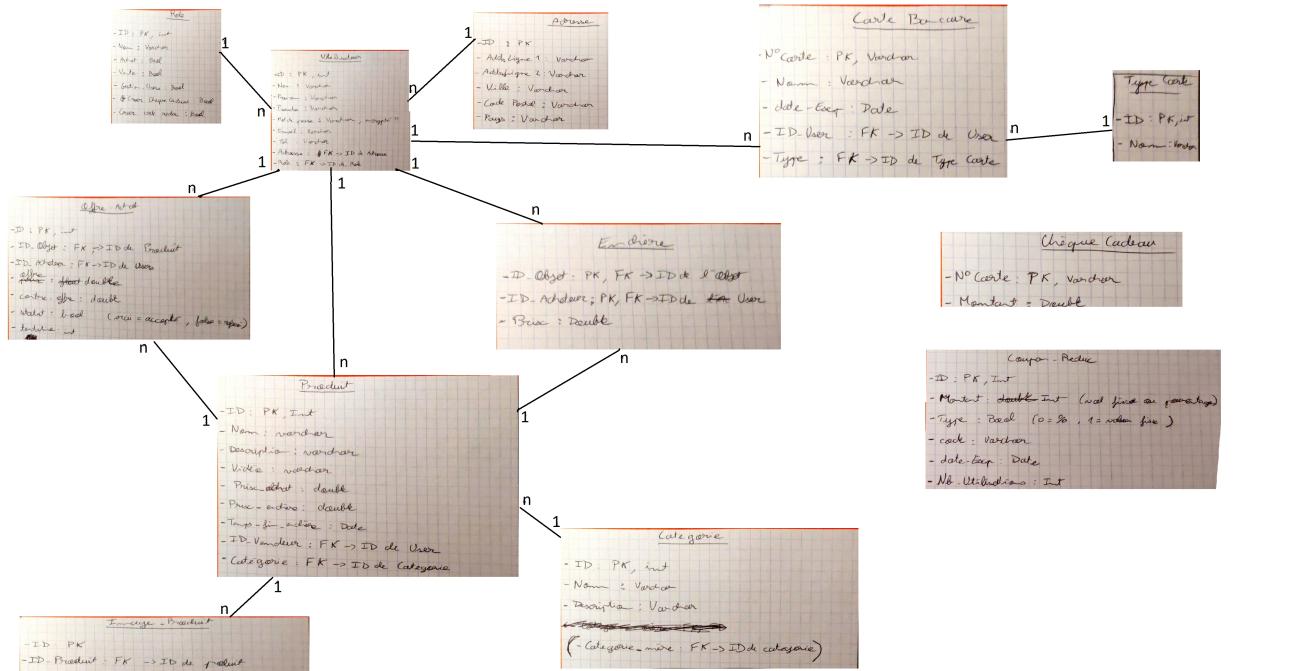 Role
- ID : PK, int
- Nom : Varchar
- Achat : Bool
- Vente : Bool
- Gestion Users : Bool
- Creer Chèque Cadeau : Bool
- Creer code reduc : Bool
1
n
Utilisateur
- ID : PK, int
- Nom : Varchar
- Prenom : Varchar
- Pseudo : Varchar
- Mot de passe : Varchar, encrypté
- Email : Varchar
- Tel : Varchar
- Adresse : FK -> ID de Adresse
- Role : FK -> ID de Role
Adresse
- ID : PK
- Adds Ligne 1 : Varchar
- Adds Ligne 2 : Varchar
- Ville : Varchar
- Code Postal : Varchar
- Pays : Varchar
1
n
Carte Bancaire
- N° Carte : PK, Varchar
- Nom : Varchar
- date-Exp : Date
- ID-User : FK -> ID de User
- Type : FK -> ID de Type Carte
1
n
Type Carte
- ID : PK, int
- Nom : Varchar
n
1
Offre Achat
- ID : PK, int
- ID_Objet : FK -> ID de Produit
- ID_Acheteur : FK -> ID de User
- offre : double
- contre offre : double
- statut : bool (vrai = accepté, false = refusé)
- tentative int
1
n
1
n
1
n
Enchère
- ID_Objet : PK, FK -> ID de l'Objet
- ID_Acheteur : PK, FK -> ID de User
- Prix : Double
Chèque Cadeau
- N° Carte : PK, Varchar
- Montant = Double
Coupon-Reduc
- ID : PK, Int
- Montant : double Int (val fixe ou pourcentage)
- Type : Bool (0 = %, 1 = valeur fixe)
- code : Varchar
- date-Exp : Date
- Nb-Utilisations : Int
n
1
n
1
Produit
- ID : PK, Int
- Nom : varchar
- Description : varchar
- Vidéo : varchar
- Prix_achat : double
- Prix_enchère : double
- Temps_fin_enchère : Date
- ID_Vendeur : FK -> ID de User
- Catégorie : FK -> ID de Categorie
n
1
Categorie
- ID : PK, int
- Nom : Varchar
- Description : Varchar
(- Categorie_mère : FK -> ID de categorie)
1
n
Image-Produit
- ID : PK
- ID-Produit : FK -> ID de produit